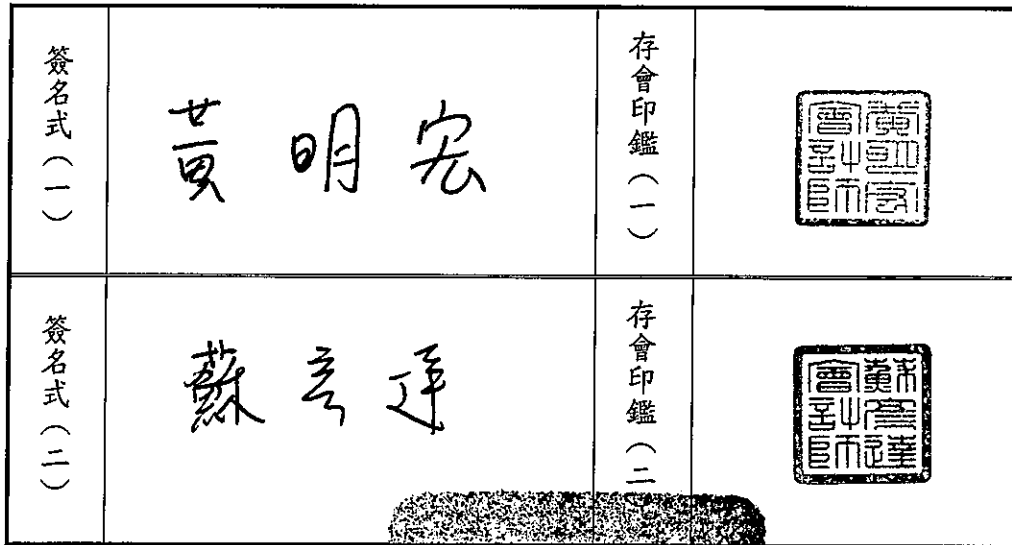 簽名式（一）
黃明宏
存會印鑑（一）
黃明宏
會計師
簽名式（二）
蘇彥達
存會印鑑（二）
蘇彥達
會計師